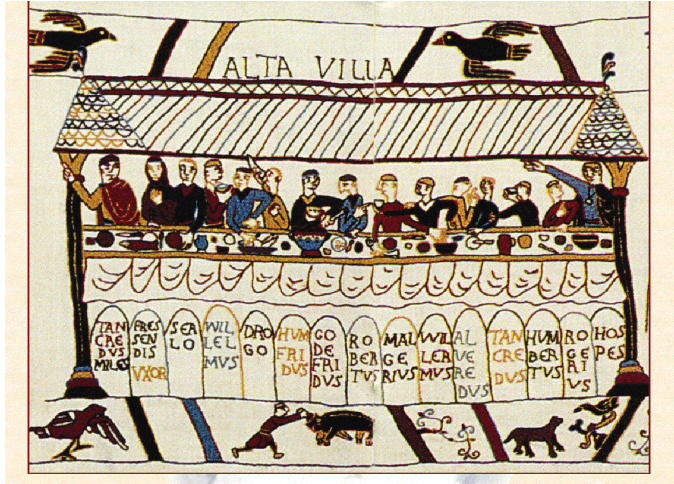 ALTA VILLA
TAN
CRE
DVS
MILES
FRES
SEN
DIS
VXOR
SER
LO
WIL
LEL
MVS
DRO
GO
HUM
FRI
DVS
GO
DE
FRI
DVS
RO
BER
TVS
MAL
GE
RIVS
WIL
LER
MVS
AL
VE
RE
DVS
TAN
CRE
DVS
HUM
BER
TVS
RO
GE
RI
VS
HOS
PES